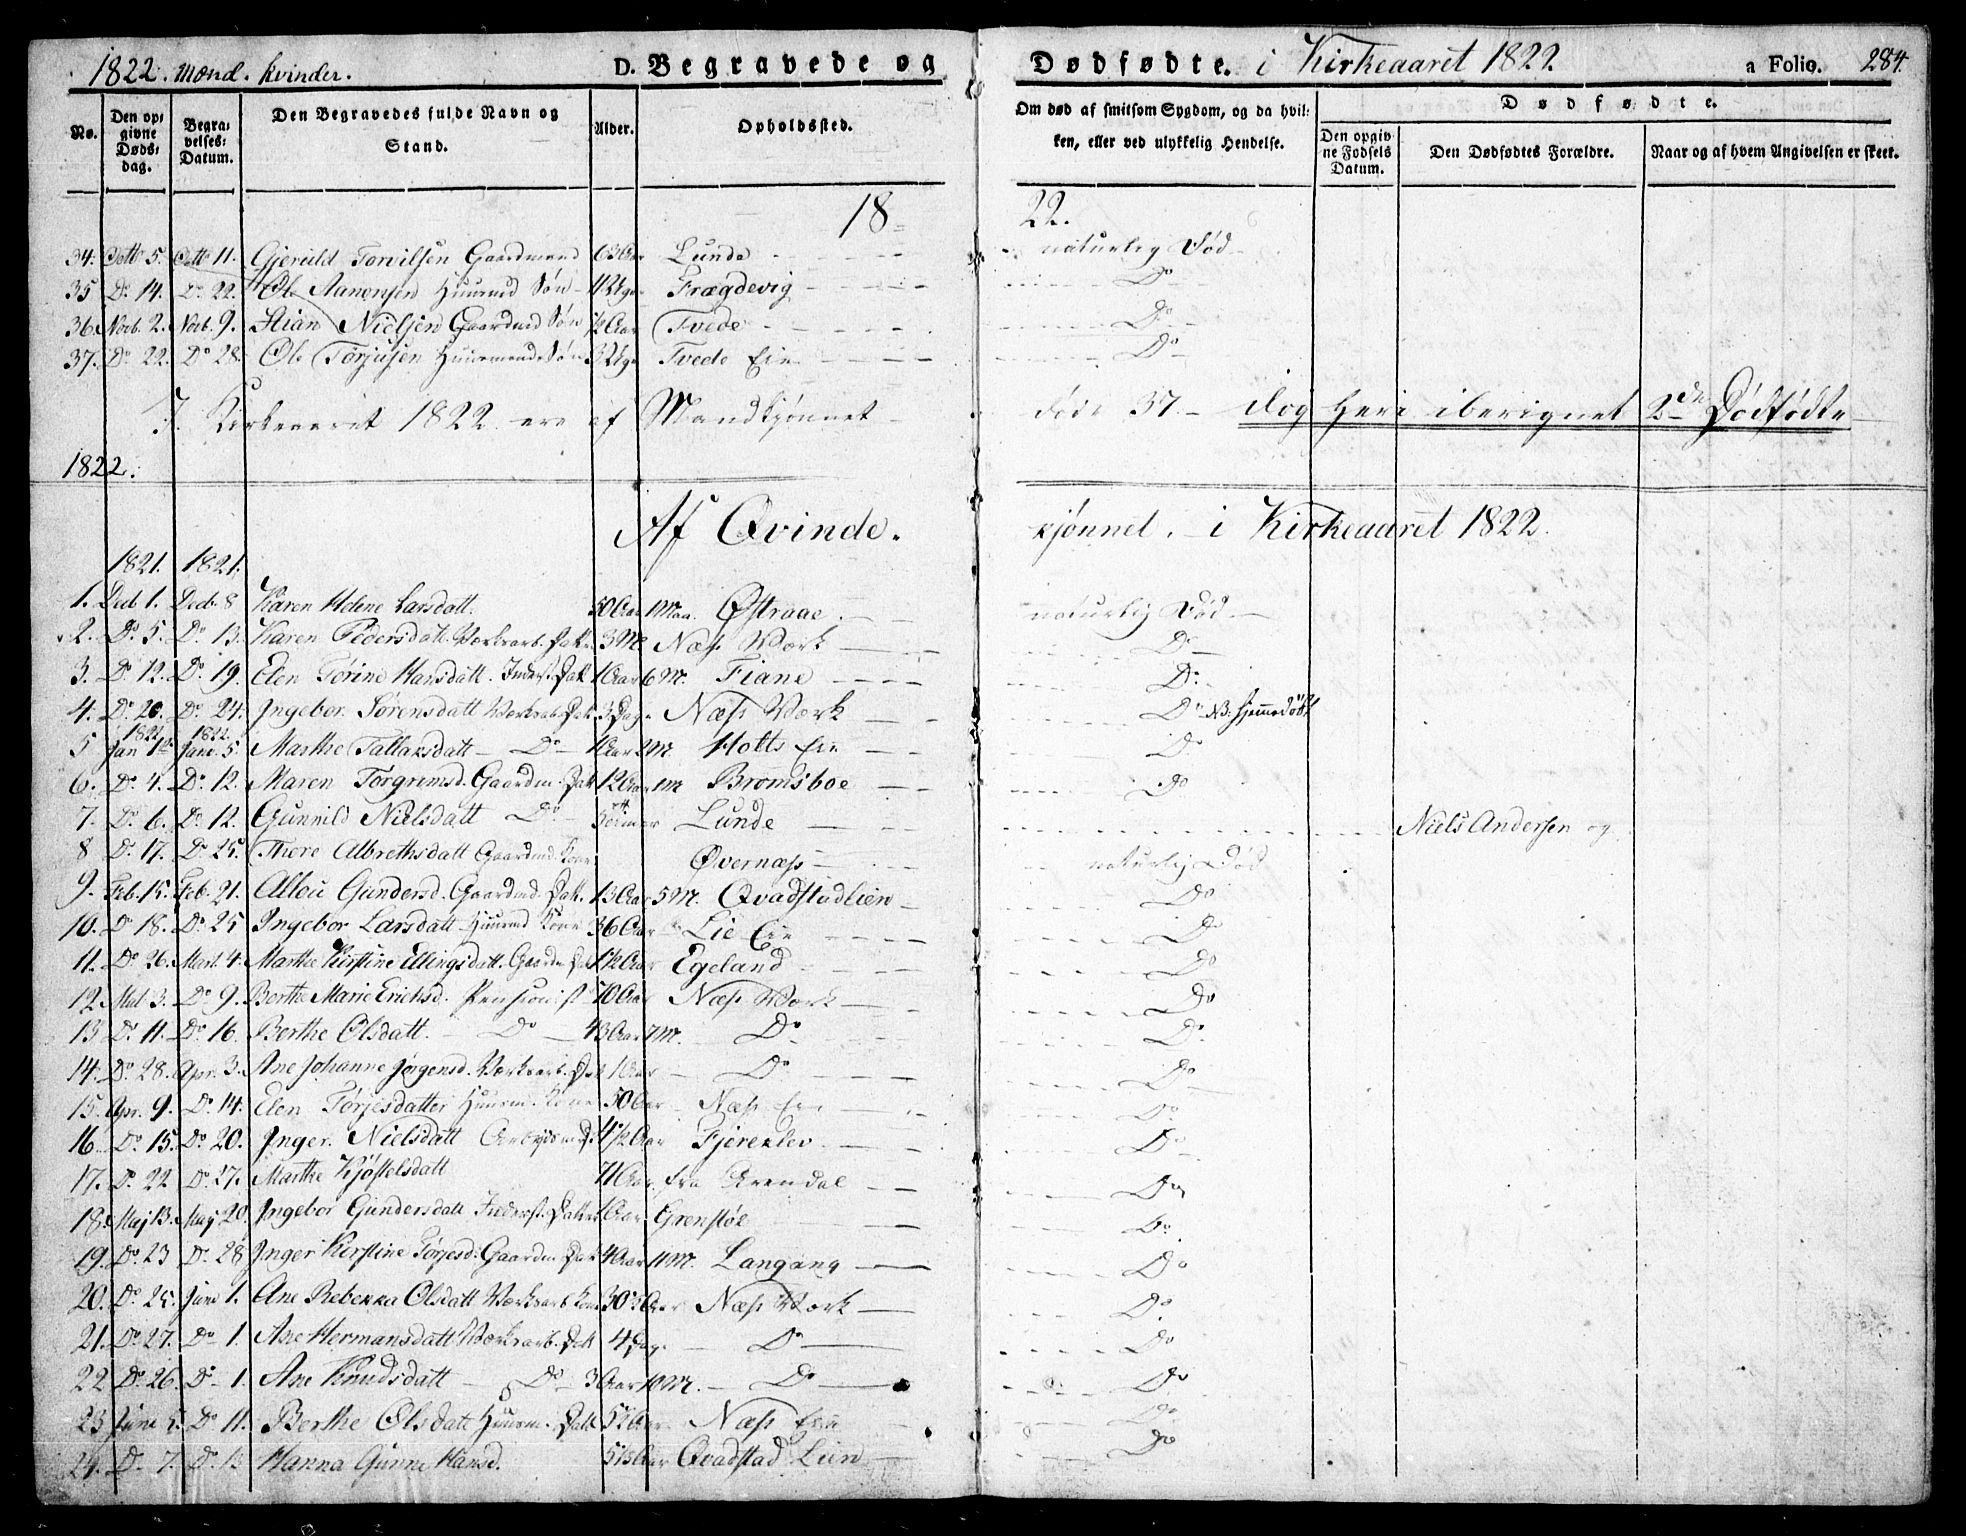 1822. Mænd. Kvinder. D. Begravede og Dødfødte. i Kirkeaaret 1822 a Folio. 284.
No. Den opgivne Dødsdag. Begravelses Datum. Den Begravedes fulde Navn og Stand. Alder. Opholdssted. Om død af smitsom Sygdom, og da hvilken, eller ved ulykkelig Hendelse. Dødfødte. Den opgivne Fødsels Datum. Den Dødfødtes Forældre. Naar og af hvem Angivelsen er skeet.
18 22.
34. Octb 5. Octb 11. Gjeruld Torvilsen Gaardmand 63 Aar Lunde naturlig Død
35 Do 14. Do 22. Ole Aanonsen Huusmd Søn Frægdevig Do
36. Novb. 2. Novb. 9. Stian Nielsen Gaardmd Søn 1/2 Aar Tvede Do
37. Do 22. Do 28. Ole Torjusen Huusmands Søn Tvede Eie Do
I Kirkeaaret 1822 ere af Mandkjønnet døde 37. dog heri iberignet 2de Dødfødte
1822.
Af Qvinde. kjønnet. i Kirkeaaret 1822.
1821. 1821.
1. Decb 1. Decb. 8 Karen Helene Larsdatt. 50 Aar 1 Maa. Østraae. naturlig Død
2. Do 5. Do 13. Karen Pedersdatt. Værksarb. Datt. 3 M. Næss Værk Do
3. Do 12. Do 19. Elen Torine Hansdatt. Inderst. Datt 1 Aar 6 M. Fiane Do
4. Do 20. Do 24. Ingebor Sørensdatt Værksarb. Dat. 3 Dage Næss Værk Do NB. hjemmedøbt
1822 1822
5 Jan 1. Janv. 5. Marthe Tallaksdatt Do 1 Aar 2 M Holts Eie Do
6. Do 4. Do 12. Maren Torgrimsd. Gaardm. Dat 12 Aar 1 M Bromsboe Do
7. Do 6. Do 12. Gunnild Nielsdatt Do Lunde Niels Andersen og
8 D. 17. Do 25. Thore Albrethsdatt Gaardmd. Kone Øvernæss naturlig Død
9. Feb. 15. Feb. 21. Alou Gundersd. Gaardmd. Dat. 13 Aar 5 M. Qvadstadlien Do
10. Do 18. Do 25 Ingebor Larsdatt Huusmd Kone 36 Aar Lie Eie Do
11. Do 26. Mart. 4. Marthe Kirstine Ellingsdatt. Gaardm. Dat 1 1/2 Aar Egeland Do
12. Mat 3. Do 9. Berthe Marie Erichsd. Pensionist 70 Aar Næss Værk Do
13 Do 11. Do 16. Berthe Olsdatt. Do 43 Aar 7 M. Do Do
14. Do 28. Apr. 3. Ane Johanne Jørgensd. Værksarb. Dat 1 Aar Do Do
15. Apr. 9. Do 14. Elen Torjesdatter Huusm. Kone 50 Aar Næss Eie Do
16. Do 15. Do 20. Inger Nielsdatt 4 1/2 Aar Fjereklev Do
17. Do 22 Do 27. Marthe Kjøstelsdatt 71 Aar fra Arendal Do
18. Maj 13. Maj 20. Ingebor Gundersdatt Inderst. Datter 1 Aar Grenstøe Do
19. Do 23 Do 28 Inger Kirstine Torjesd. Gaardm. Dat 4 Aar 11 M. Langang Do
20. Do 25. Juni 1. Ane Rebekka Olsdatt Værksarb Kone Næss Værk Do
21. Do 27. Do 1. Ane Hermansdatt Værksarb. Dat 4 Dag. Do Do
22 Do 26. Do 1. Ane Knudsdatt Do 3 Aar 10 M. Do Do
23 Juni 5. Do 11. Berthe Olsdatt Huusm. Datt Næss Eie Do
24. D. 7. Do 13 Hanna Gunne Hansd. Qvadstad Lien Do